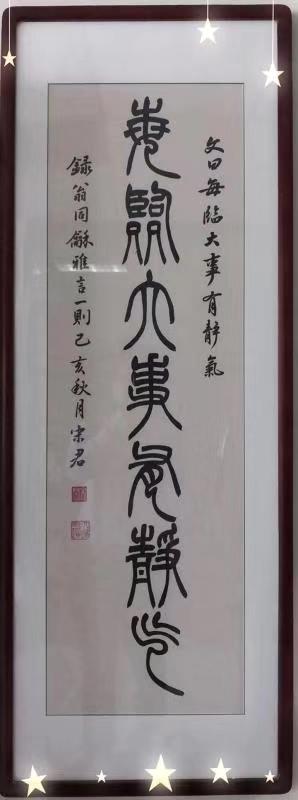 文曰每臨大事有靜氣
每臨大事有靜气
録翁同龢雅言一則己亥秋月宋君